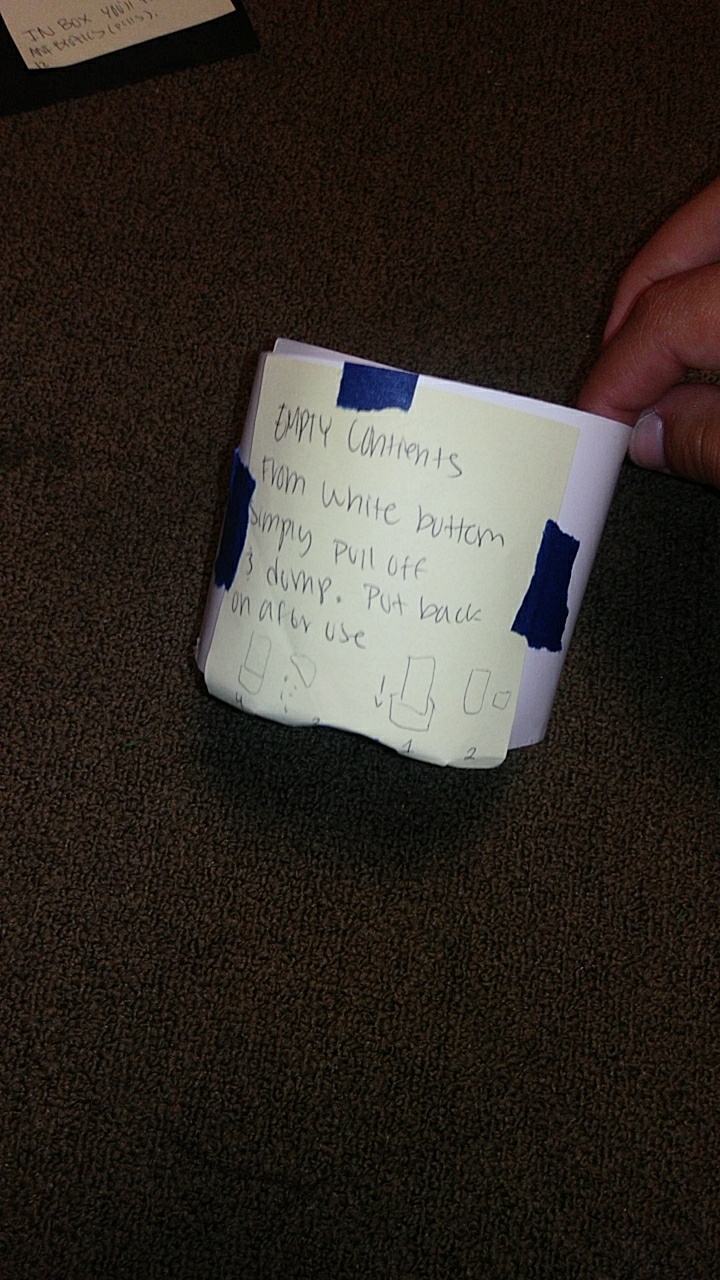 IN BOX YOU'll
ANTIBIOTICS (PILLS).
EMPTY Contients
From White buttom
Simply Pull off
& dump. Put back
on after use
4 3 1 2